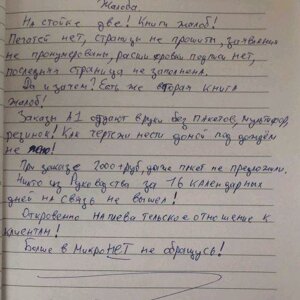 Жалоба
На стойке две! Книги жалоб!
Печатей нет, страницы не прошиты, заявления
не пронумерованы, расшифровки подписи нет,
последняя страница не заполнена.
Да и зачем? Есть же вторая книга
жалоб!
Заказы А1 отдают в руки без пакетов, мультифор,
резинок. Как чертежи нести домой под дождём
не ясно!
При заказе 2000+ руб, даже пакет не предложили.
Никто из Руководства за 16 календарных
дней на связь не вышел!
Откровенно наплевательское отношение к
клиентам!
Больше в МикроНЕТ не обращусь!